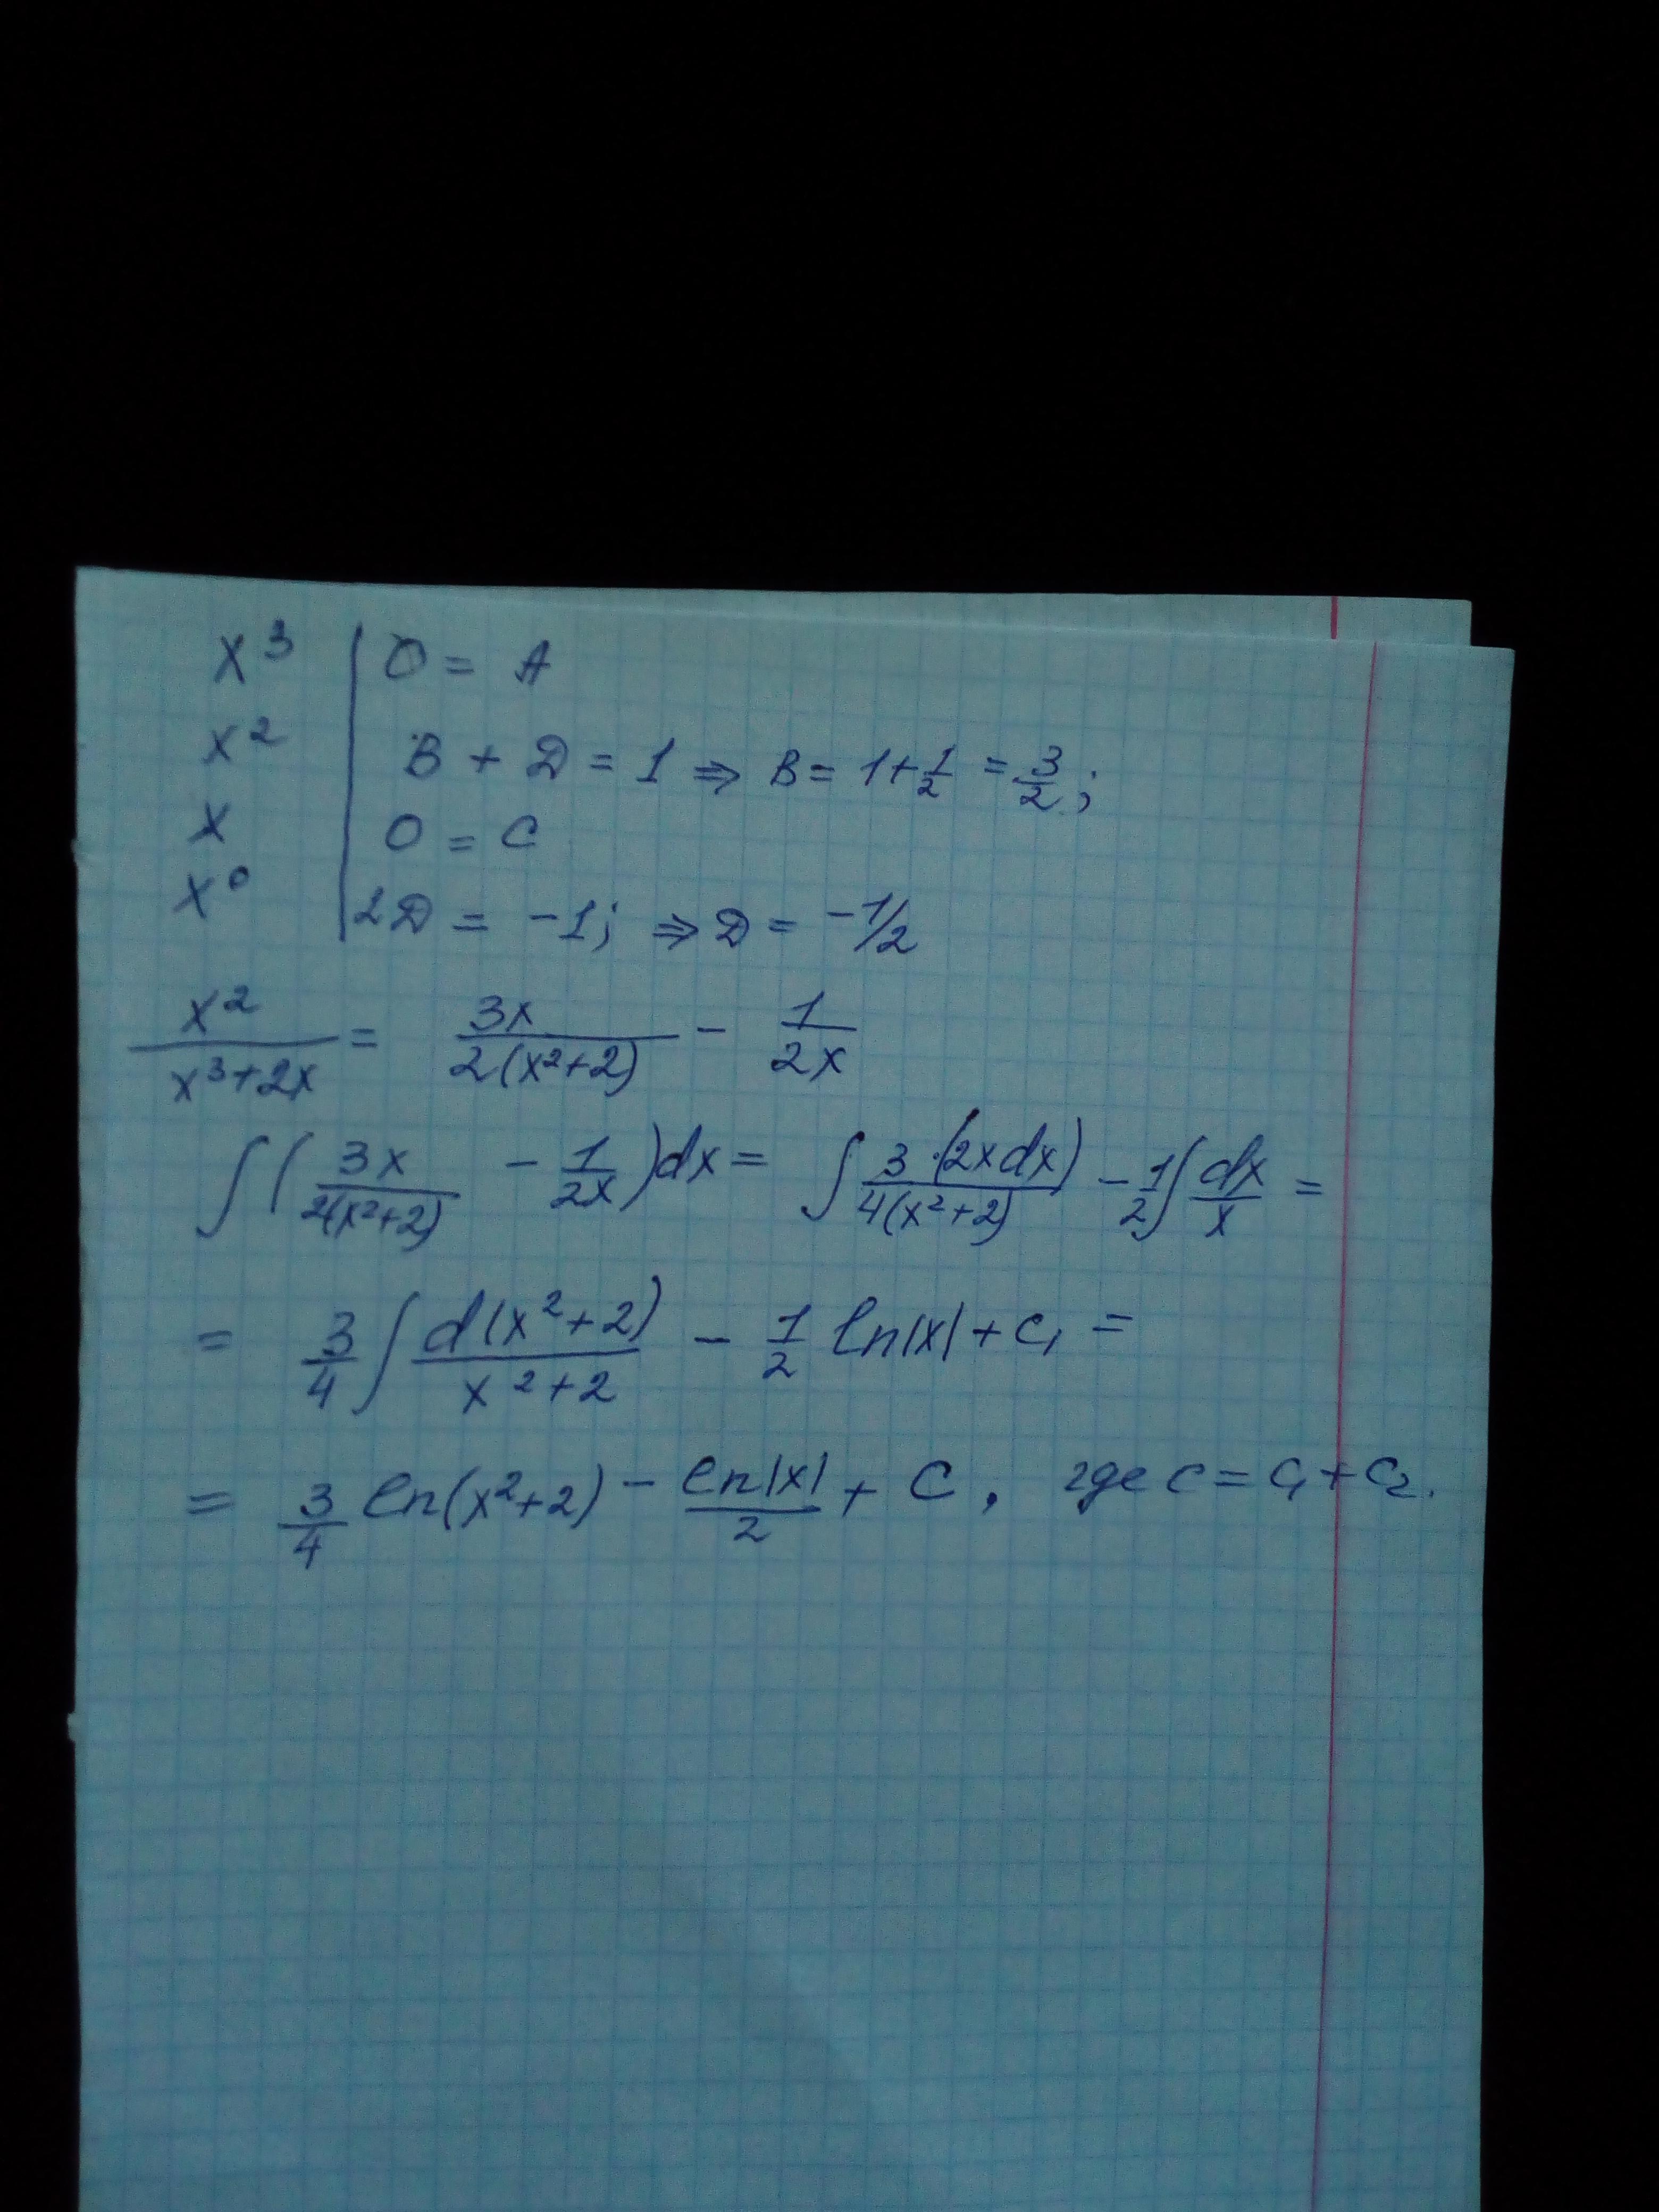 x³ | 0 = A
x² | B + D = 1 ⇒ B = 1 + 1/2 = 3/2;
x | 0 = C
x⁰ | 2D = -1; ⇒ D = -1/2
x²/(x³+2x) = 3x/(2(x²+2)) - 1/(2x)
∫(3x/(2(x²+2)) - 1/(2x))dx = ∫ 3·(2xdx)/(4(x²+2)) - 1/2 ∫ dx/x =
= 3/4 ∫ d(x²+2)/(x²+2) - 1/2 ln|x| + C₁ =
= 3/4 ln(x²+2) - ln|x|/2 + C, где C = C₁ + C₂.